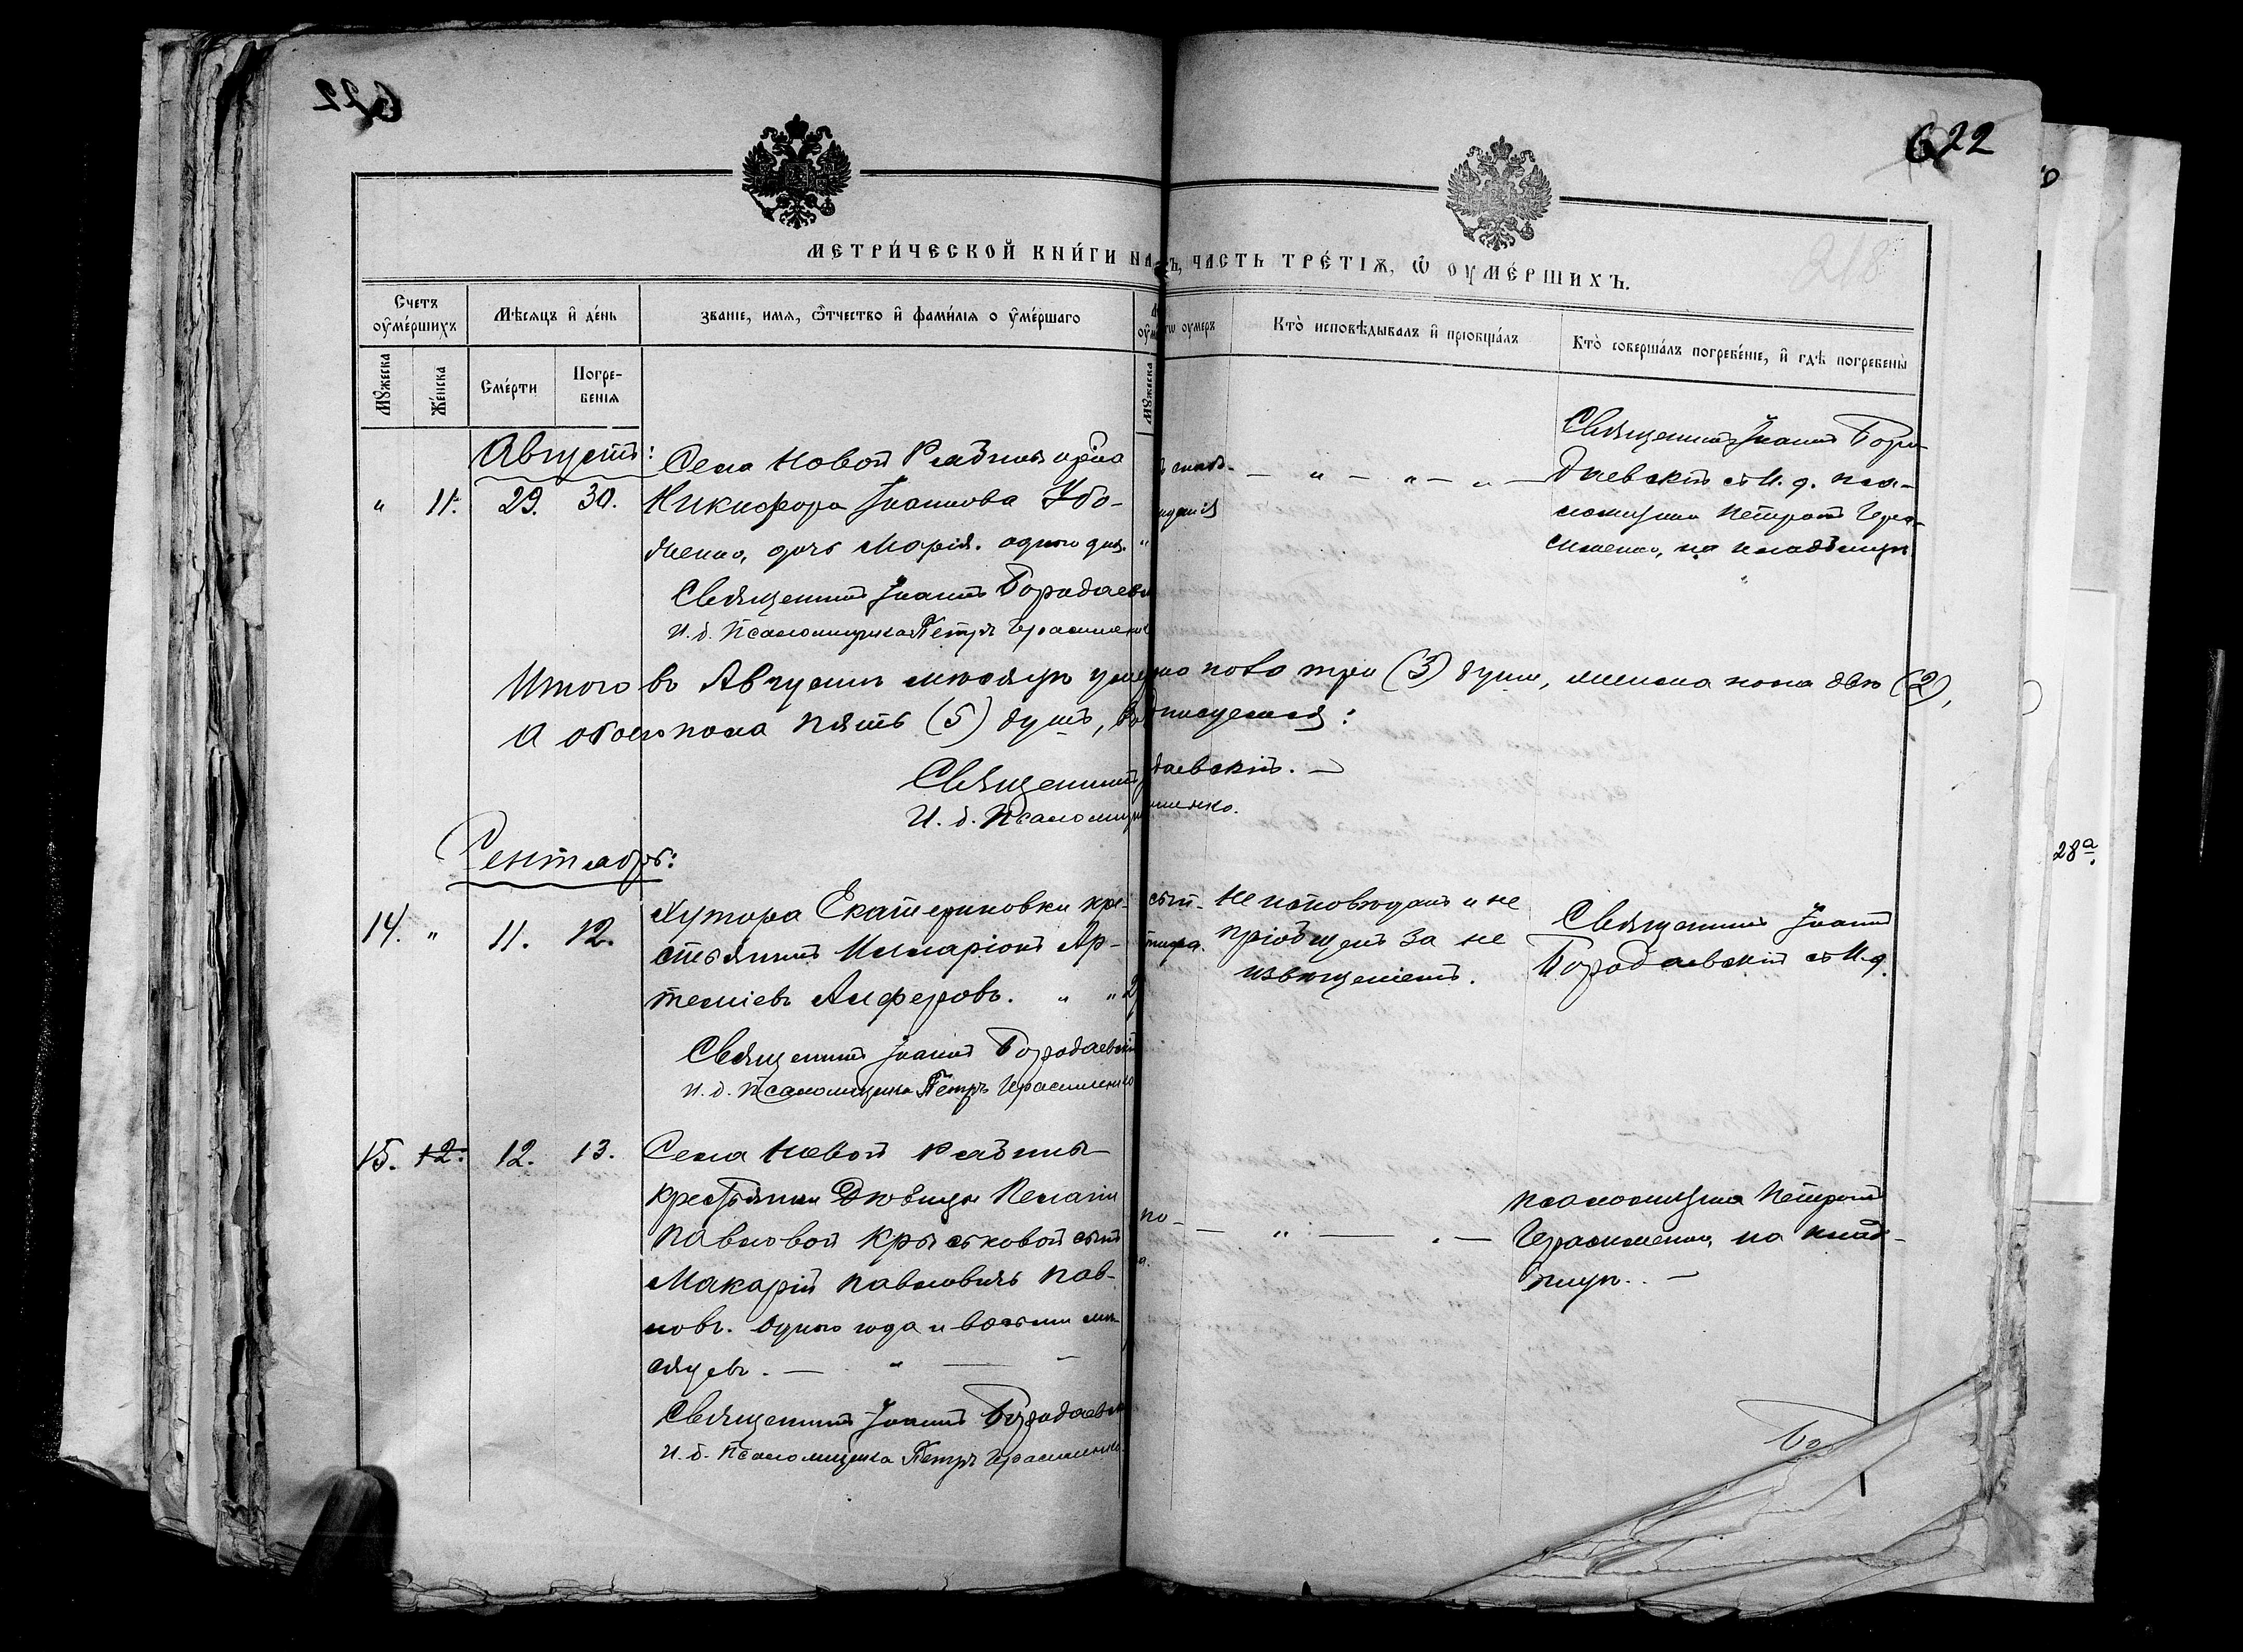 622
622
МЕТРИ́ЧЕСКОЙ КНИ́ГИ НА
Ъ, ЧАСТЬ ТРЕ́ТІѦ, Ѽ ОУМЕ́РШИХЪ.
218
Счетъ оуме́ршихъ
Мѣсяцъ и де́нь
званіе, имя, ѿтчество и фами́лія оуме́ршаго
оумеръ
Кто̀ исповѣдывалъ и пріобщалъ
Кто̀ совершалъ погребе́ніе, и гдѣ погребены̀
Мꙋжеска
Же́нска
Сме́рти
Погребенія
Мꙋжеска
Августъ:
" 11. 29. 30.
Села Новой
Никифора Іоаннова Убо-
женко, дочь Марія. одного дня.
Священникъ Іоаннъ Бородаевск
И. д. Псаломщика Петръ Герасименко
Священникъ Іоаннъ Боро-
даевскій съ И. д. пса-
ломщика Петромъ Гера-
сименко, на кладбищѣ
Итого въ Августѣ мѣсяцѣ умерло три (3) души, женска пола двѣ (2),
А обоего пола пять (5) душъ,
Священникъ
даевскій. —
И. д. Псаломщ
именко.
Сентябрь:
14. " 11. 12.
Хутора Екатериновки кре-
стьянинъ Илларіонъ Ар-
теміевъ Алферовъ. " "
Священникъ Іоаннъ Бородаевскій
И. д. Псаломщика Петръ Герасименко
Не исповѣданъ и не
пріобщенъ за не
извѣщеніемъ.
Священникъ Іоаннъ
Бородаевскій съ И. д.
15. 12. 12. 13.
Села Новой
крестьянки Дѣвицы Пелагіи
Павловой сынъ
Макарій Павловичъ Пав-
ловъ. Одного года и восьми мѣ-
сяцевъ. —
Священникъ Іоаннъ Бородаевск
И. д. Псаломщика Петръ Герасименко.
псаломщика Петромъ
Герасименко, на клад-
бищѣ. —
Бо
28а.